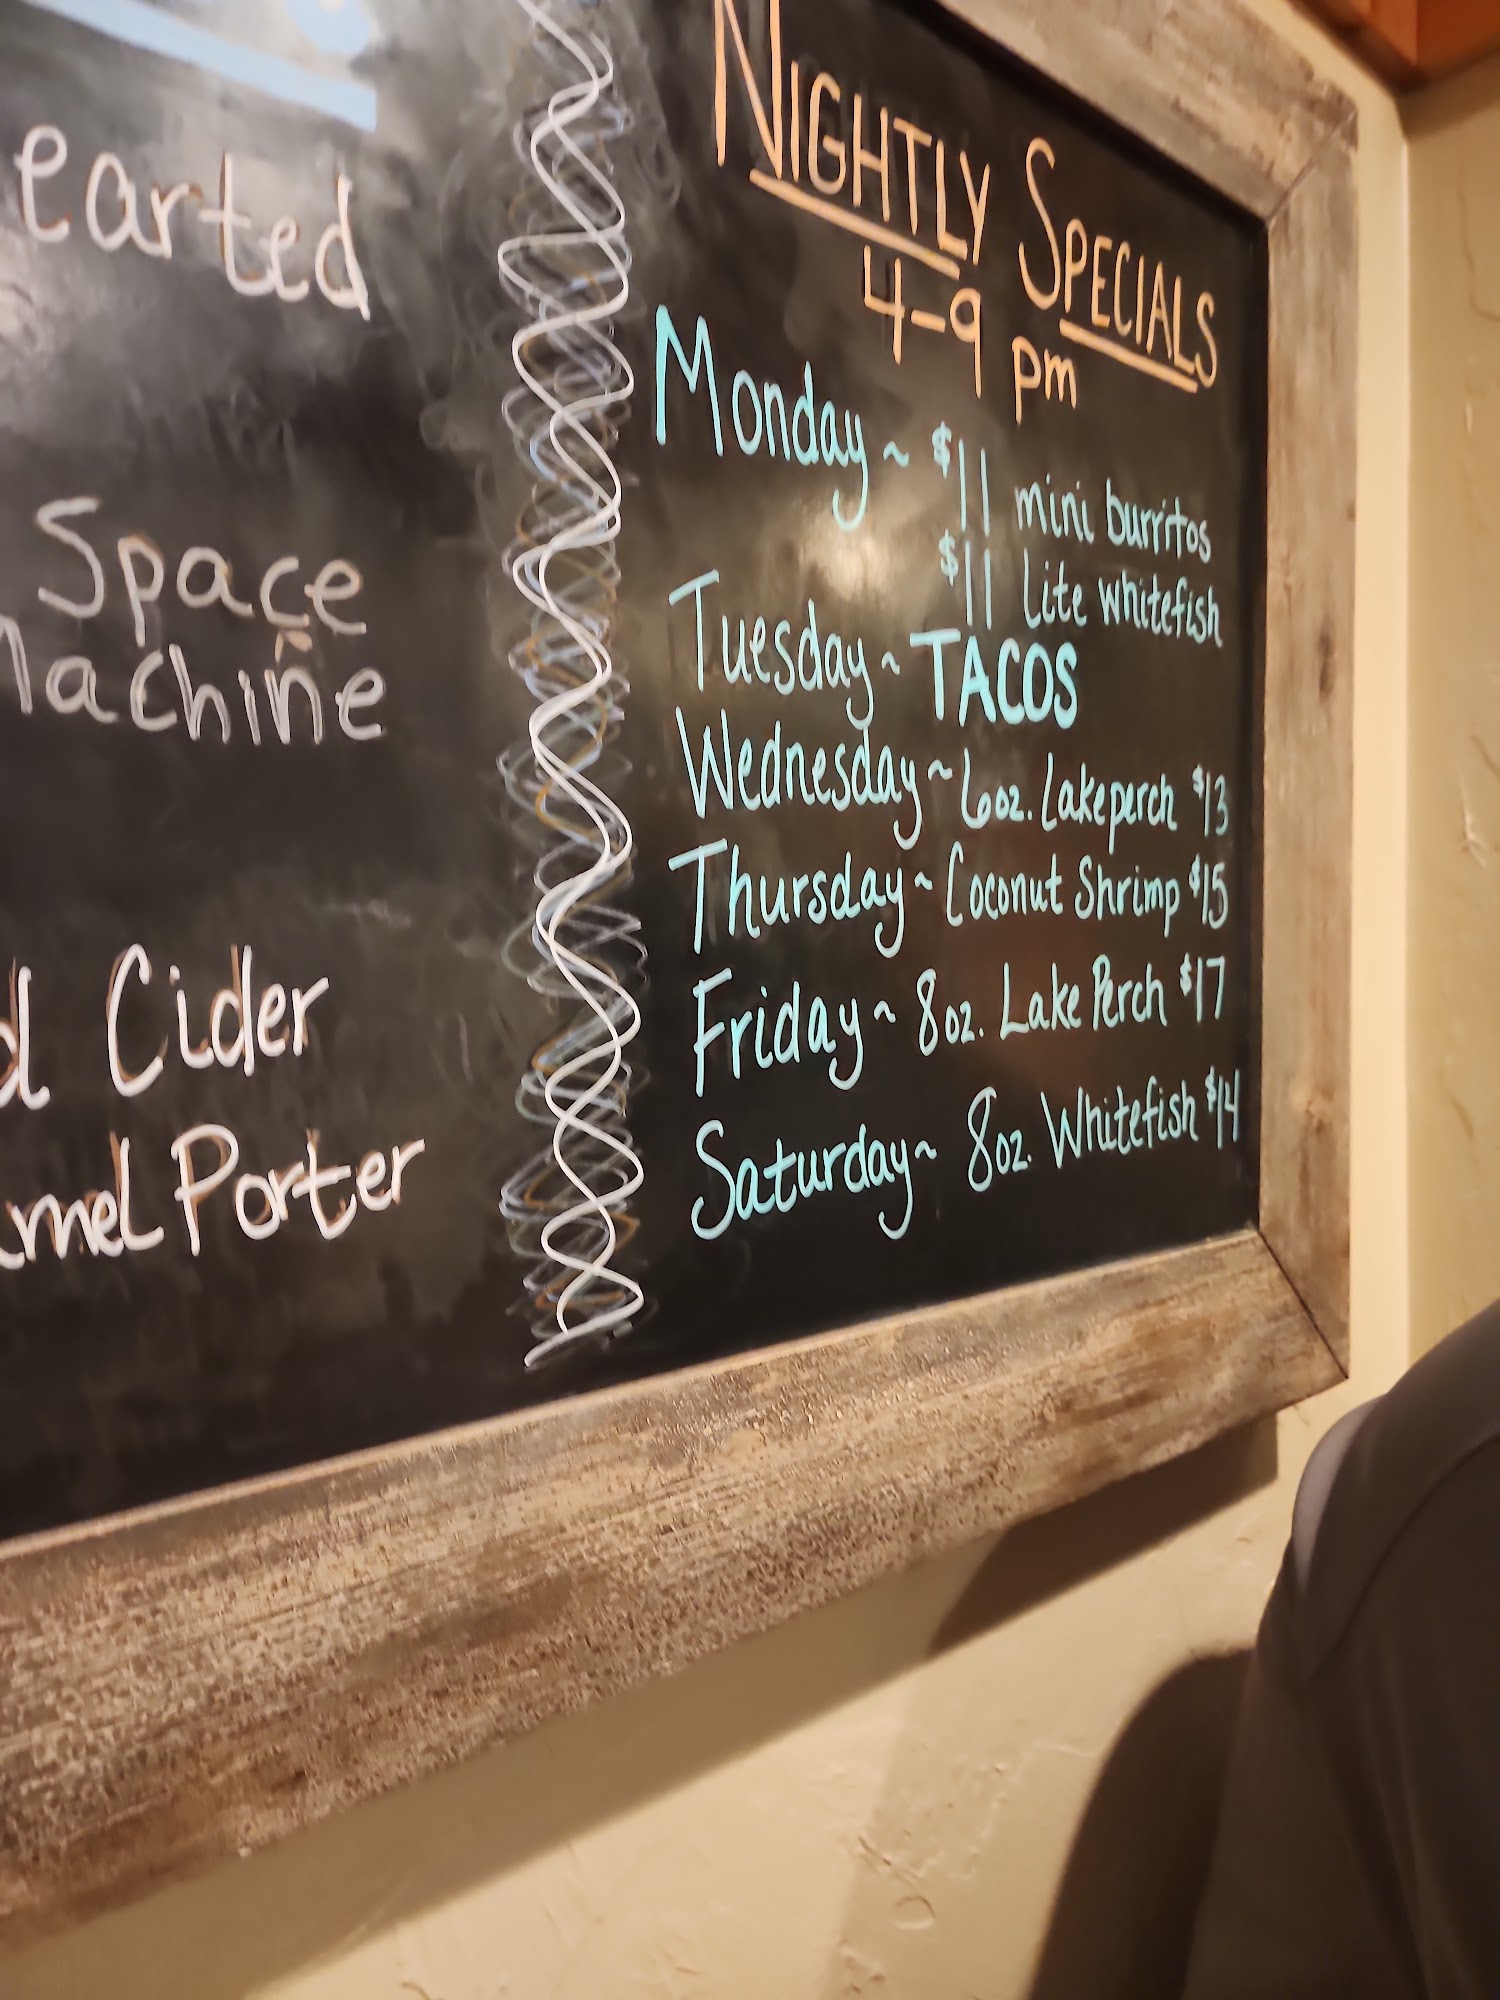 earted
Space
Machine
Cider
Porter
NIGHTLY SPECIALS
4-9 pm
Monday ~ $11 mini burritos
$11 Lite whitefish
Tuesday ~ TACOS
Wednesday ~ 6oz. Lakeperch $13
Thursday ~ Coconut Shrimp $15
Friday ~ 8oz. Lake Perch $17
Saturday ~ 8oz. Whitefish $14